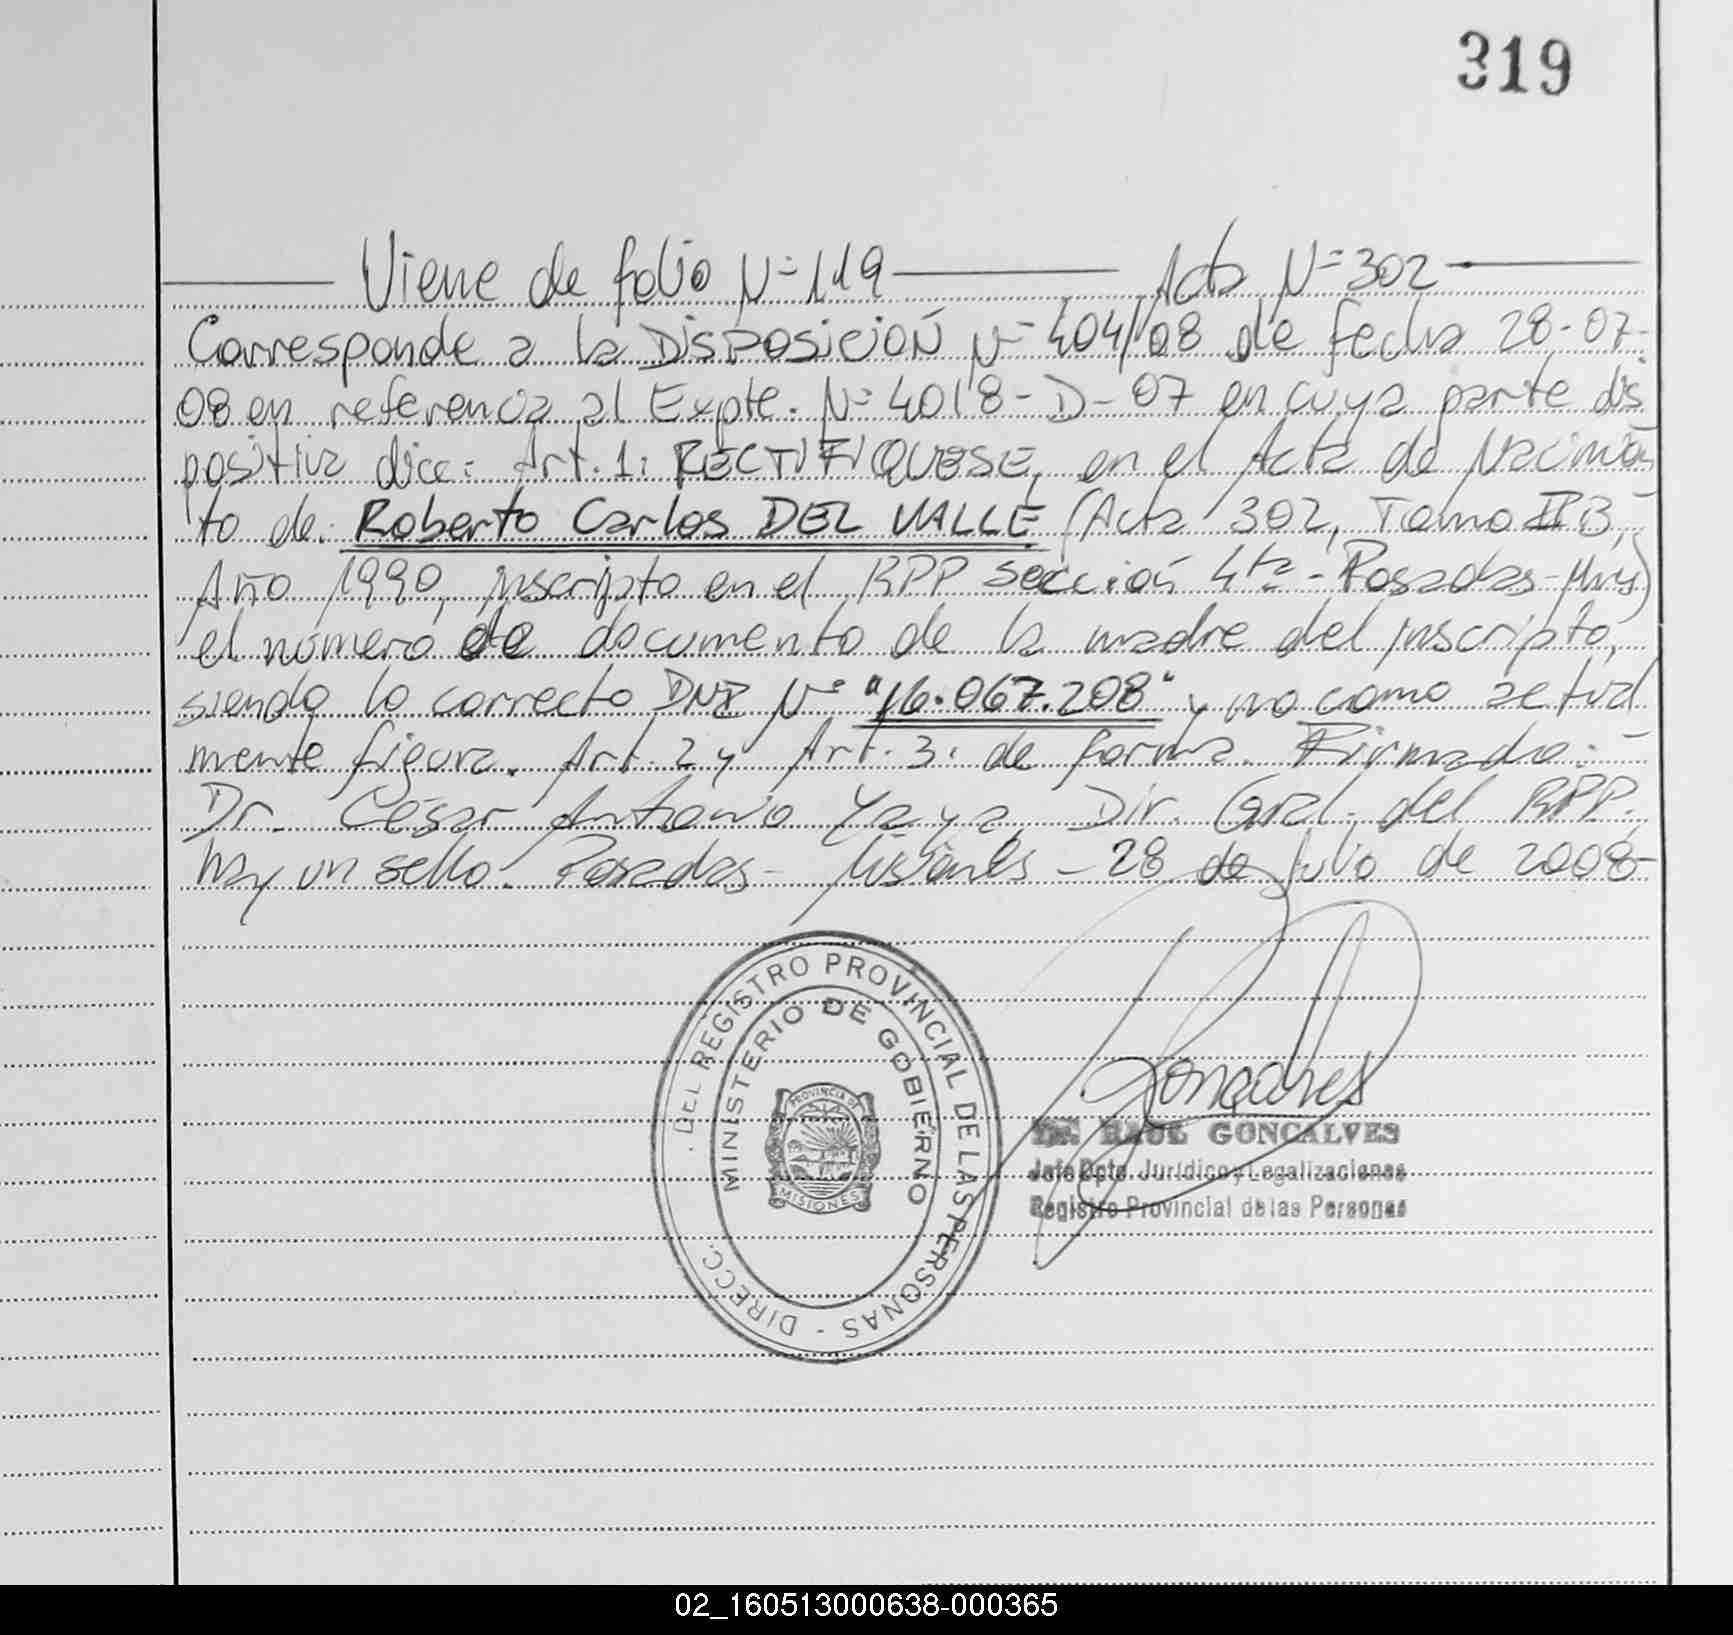 319
Viene de folio Nº 119 Acta Nº 302
Corresponde a la DISPOSICIÓN Nº 404/08 de fecha 28-07-
08 en referencia al Expte. Nº 4018-D-07 en cuya parte dis
positiva dice: Art. 1: RECTIFIQUESE, en el Acta de Nacimien
to de: Roberto Carlos DEL VALLE (Acta 302, Tomo II B,
Año 1990, inscripto en el RPP sección 4ta - Posadas - Mnes)
el número de documento de la madre del inscripto,
siendo lo correcto DNI Nº "16.067.208" y no como actual
mente figura. Art. 2 y Art. 3: de forma. Firmado: -
Dr. César Antonio Yaya, Dir. Gral. del RPP.
hay un sello. Posadas - Misiones - 28 de Julio de 2008-
DIRECC. DEL REGISTRO PROVINCIAL DE LAS PERSONAS -
MINISTERIO DE GOBIERNO
PROVINCIA DE
MISIONES
Gonçalves
Dr. RAUL GONCALVES
Jefe Dpto. Jurídico y Legalizaciones
Registro Provincial de las Personas
02_160513000638-000365